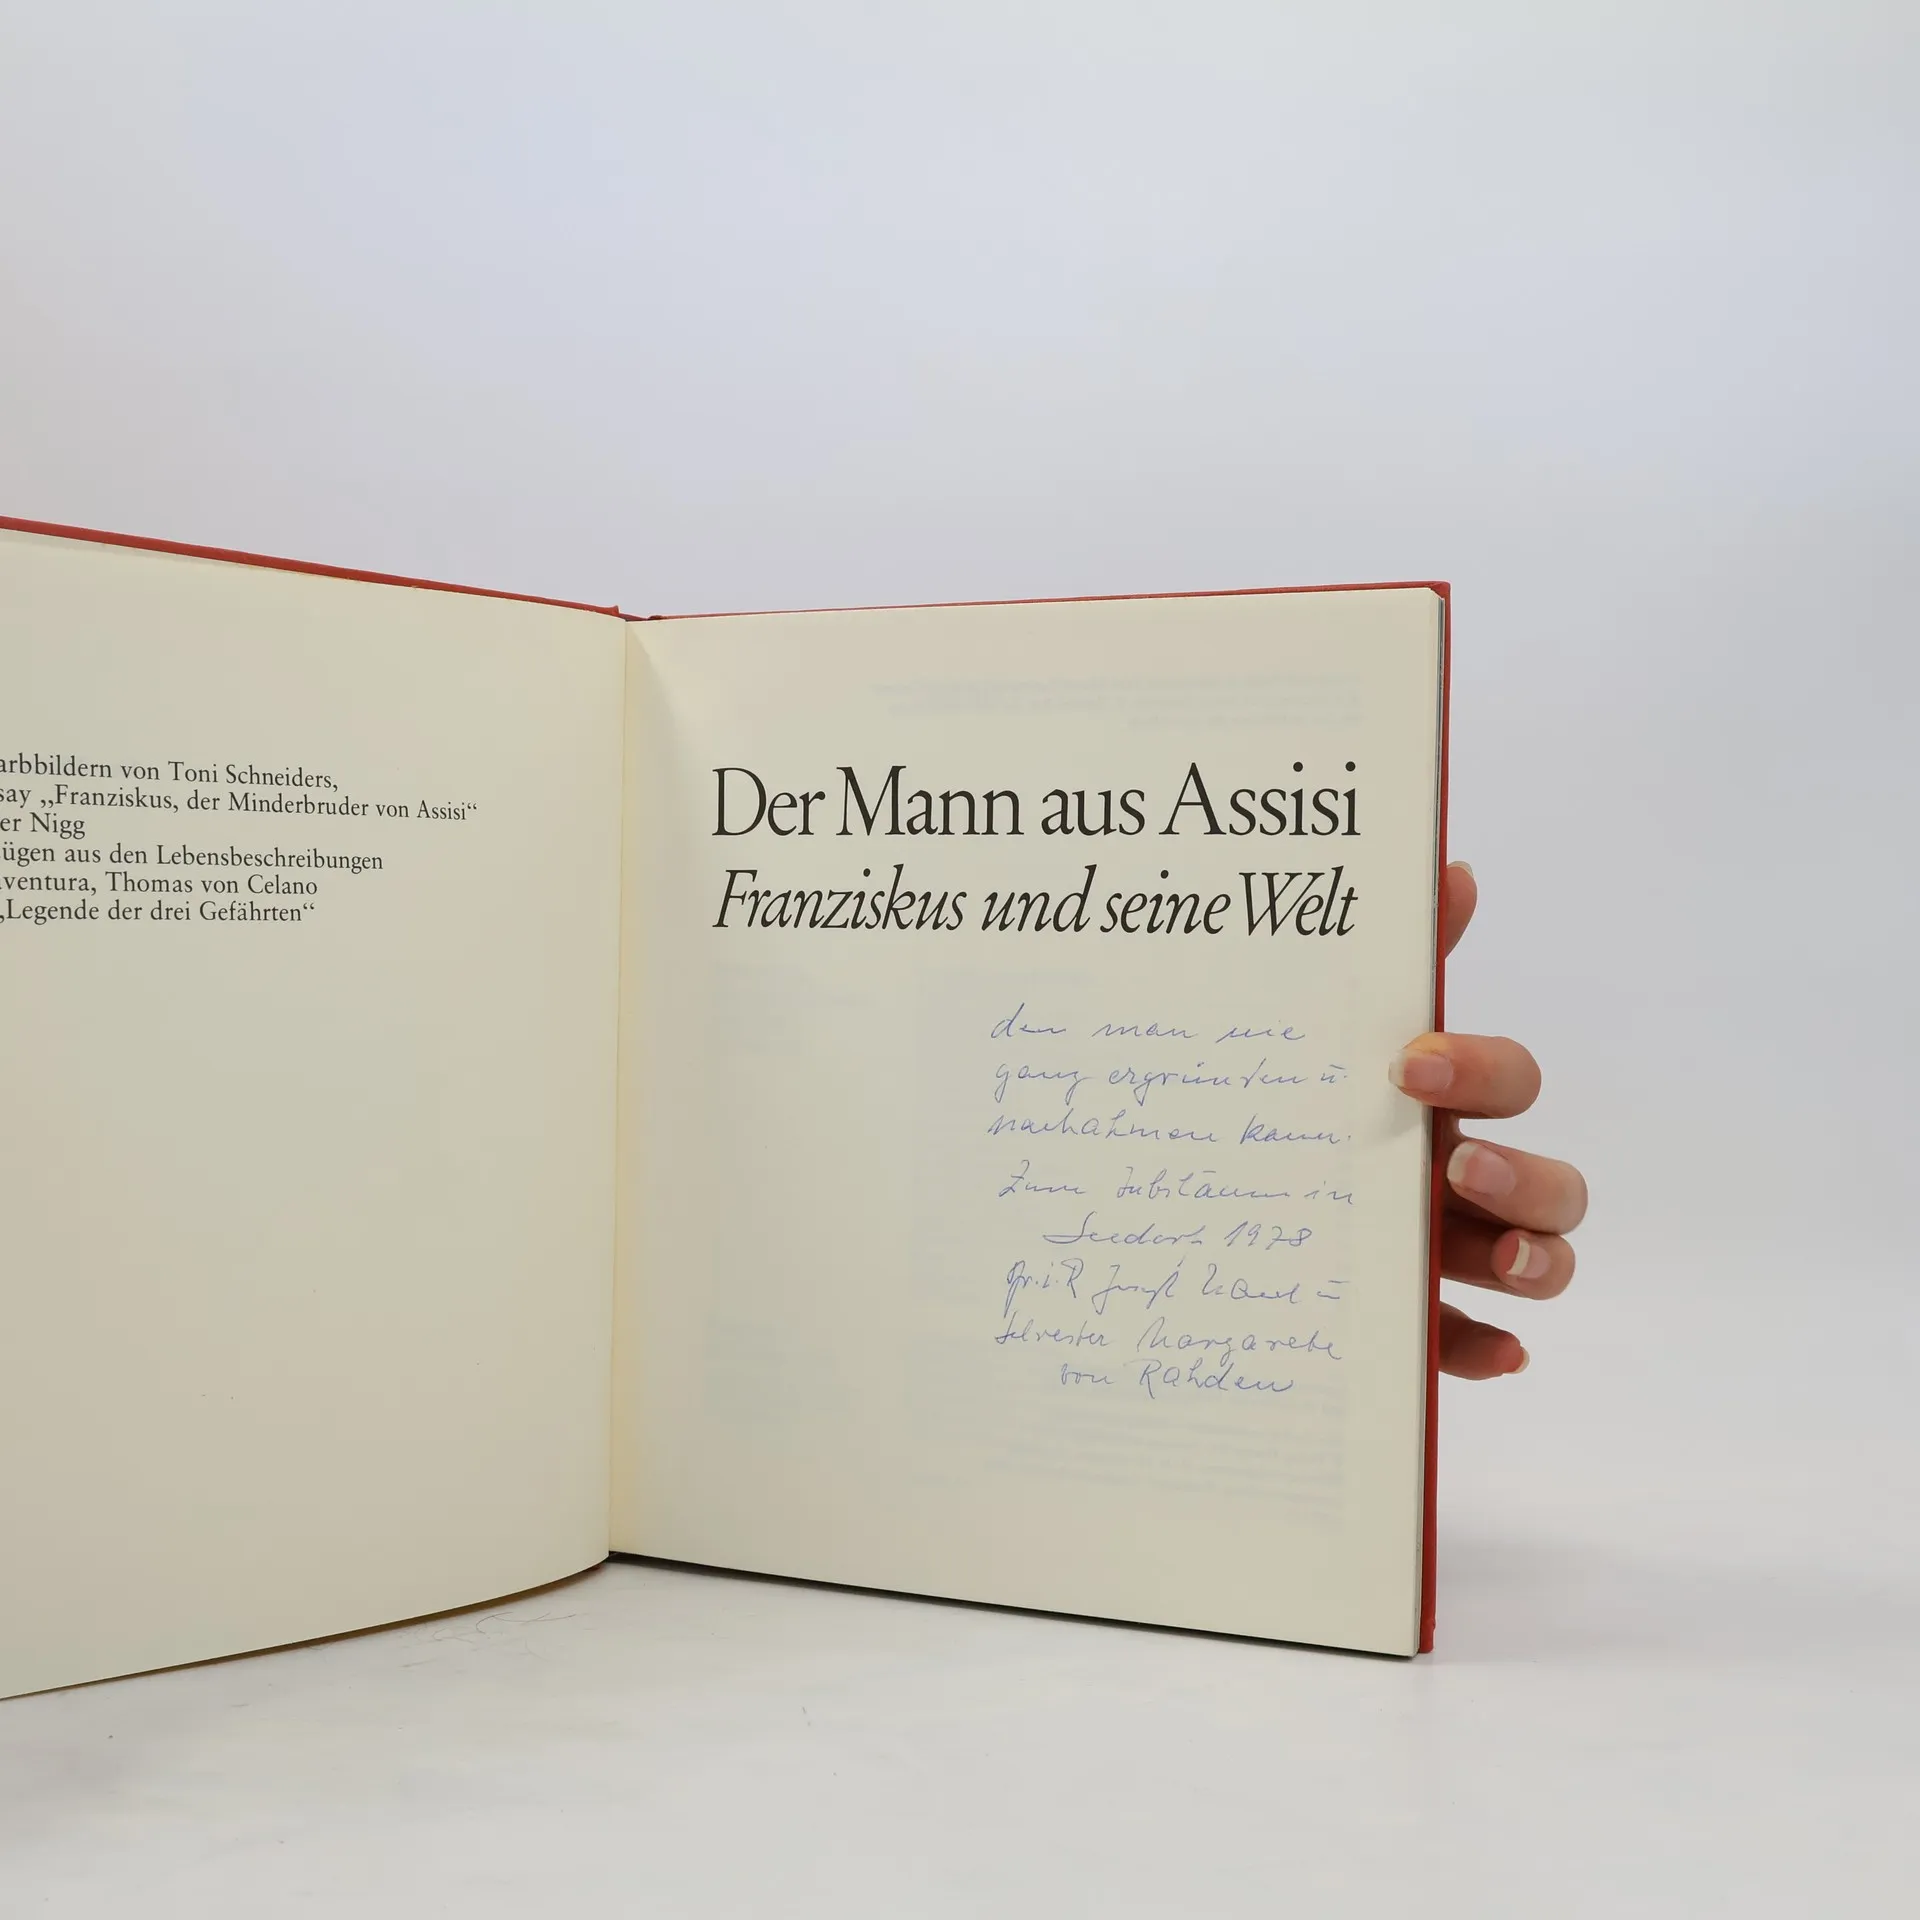 arbbildern von Toni Schneiders,
say „Franziskus, der Minderbruder von Assisi“
er Nigg
ügen aus den Lebensbeschreibungen
aventura, Thomas von Celano
„Legende der drei Gefährten“
Der Mann aus Assisi
Franziskus und seine Welt
den man nie
ganz ergründen u.
nachahmen kann.
Zum Jubiläum in
Seedorf 1978
Josef u
Silvester Margarete
von Rahden